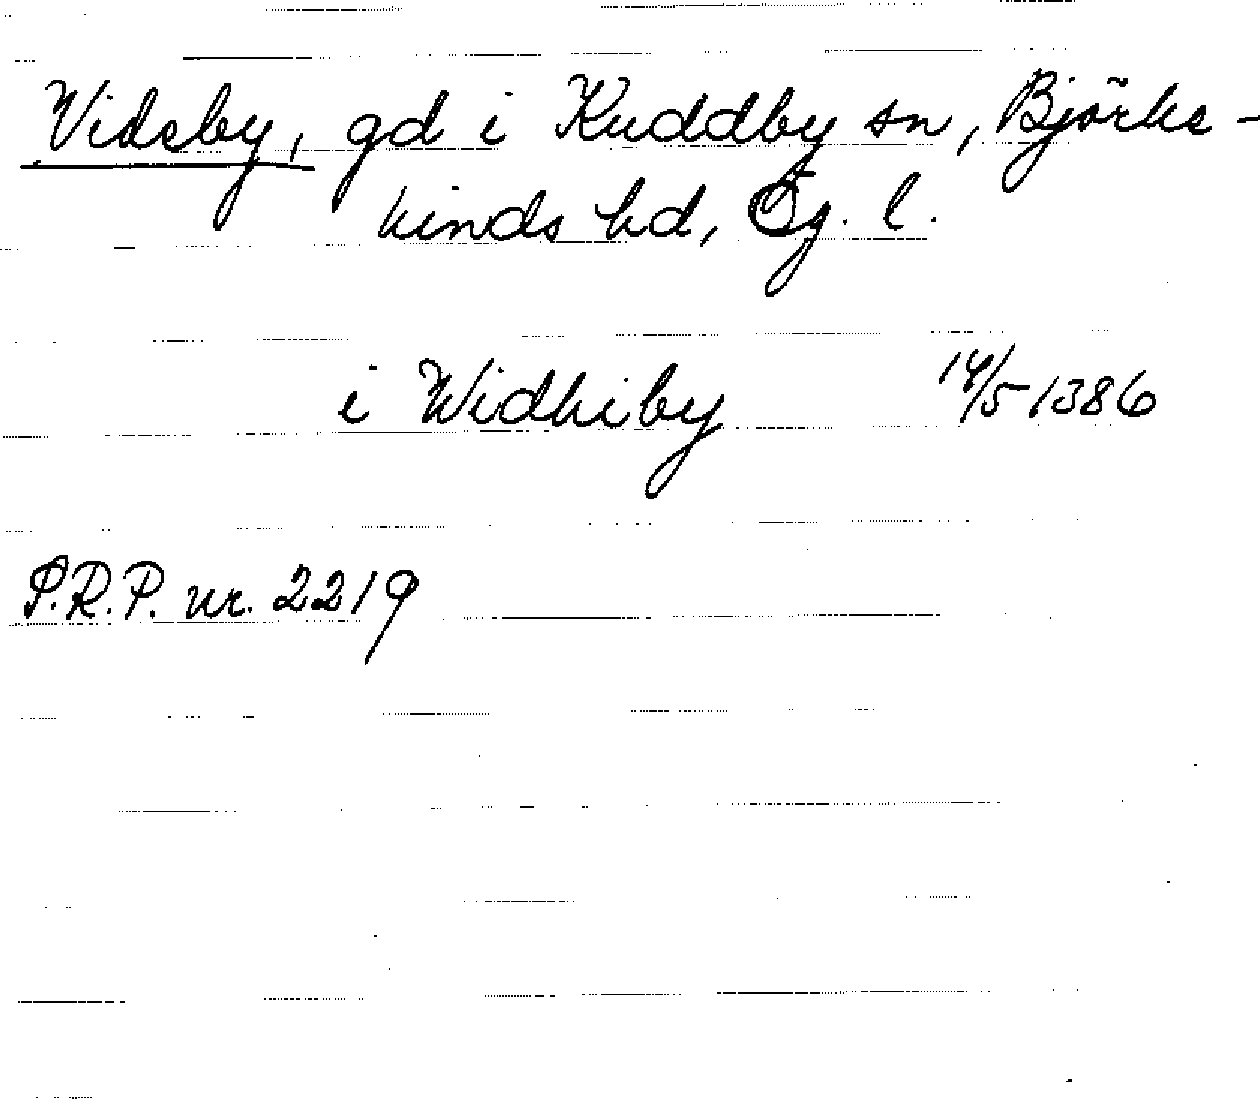 Videby, gd i Kuddby sn, Björke-
kinds hd, Ög. l.
i Widhiby 14/5 1386
P.R.P. nr. 2219